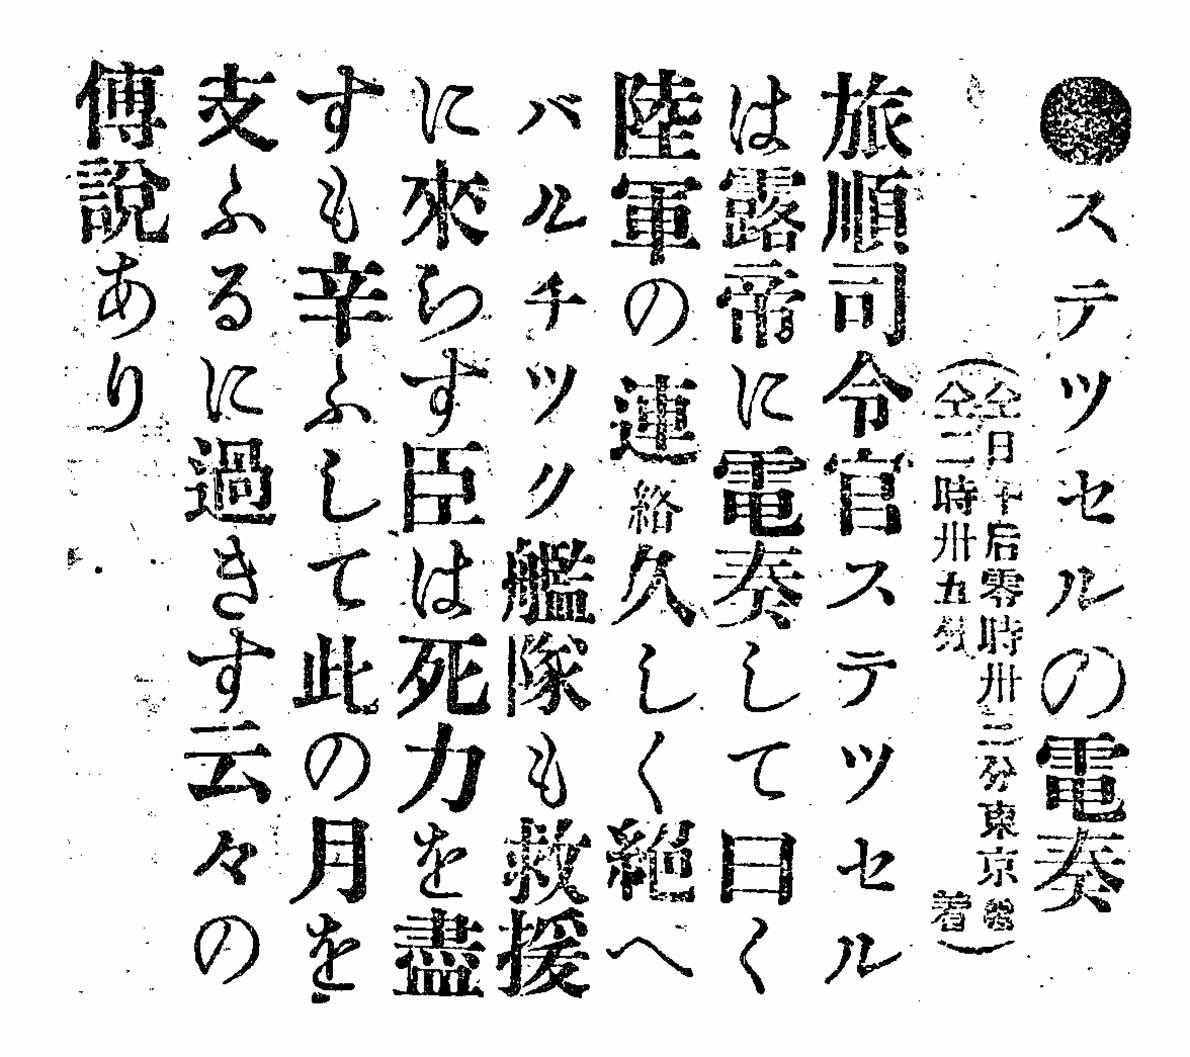 ●ステツセルの電奏
(仝日午后零時卅三分東京發
仝二時卅五分着)
旅順司令官ステツセル
は露帝に電奏して曰く
陸軍の連絡久しく絕へ
バルチツク艦隊も救援
に來らす臣は死力を盡
すも辛ふして此の月を
支ふるに過きす云々の
傳說あり